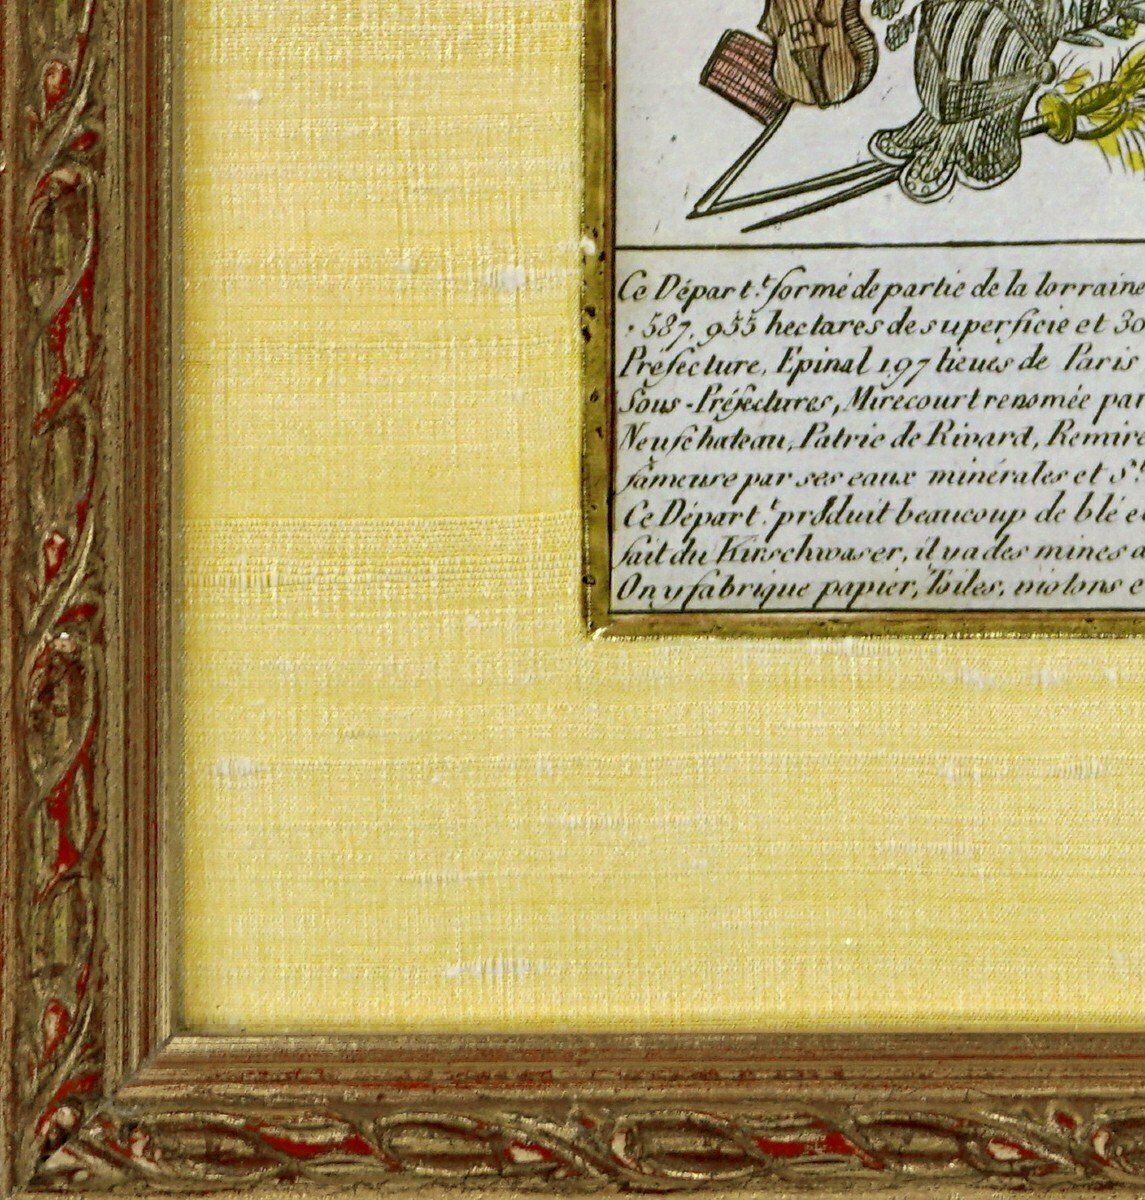 Ce Départ.t formé de partie de la lorraine
587,955 hectares de superficie et 30
Préfecture, Epinal 197 lieues de Paris
Sous-Préfectures, Mirecourt renomée par
Neufchateau, Patrie de Rivard, Remire
fameuse par ses eaux minérales et St.
Ce Départ.t produit beaucoup de blé e
fait du Kirschwaser, il y a des mines d
On y fabrique papier, Toiles, molons e